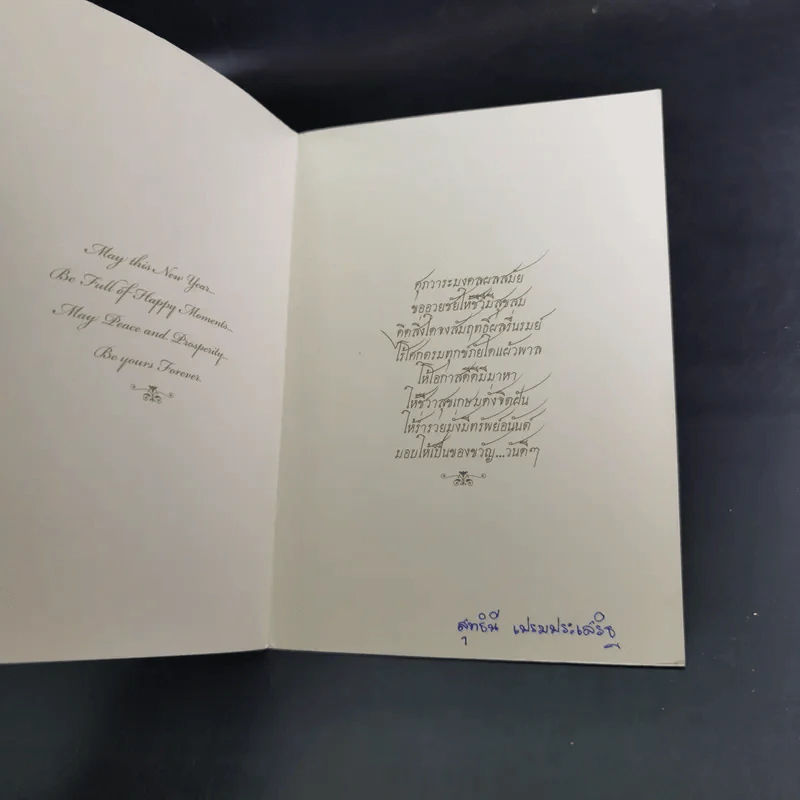 May this New Year
Be Full of Happy Moments
May Peace and Prosperity
Be yours Forever.
ศุภวาระมงคลผลสมัย
ขออวยชัยให้ชีวีมีสุขสม
คิดสิ่งใดจงสัมฤทธิ์ผลรื่นรมย์
ไร้โศกตรมทุกข์ภัยใดแผ้วพาล
ให้โอกาสดีดีมีมาหา
ให้ชีวาสุขเกษมดังจิตฝัน
ให้ร่ำรวยมั่งมีทรัพย์อนันต์
มอบให้เป็นของขวัญ...วันดีๆ
สุทธินี เปรมประเสริฐ